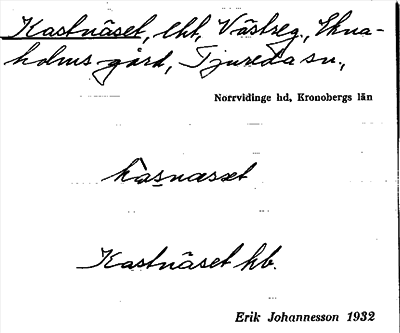 Kastnäset, lht, Västreg., Ekna-
holms gård, Tjureda sn.,
Norrvidinge hd, Kronobergs län
kàsnæsət
Kastnäset hb.
Erik Johannesson 1932